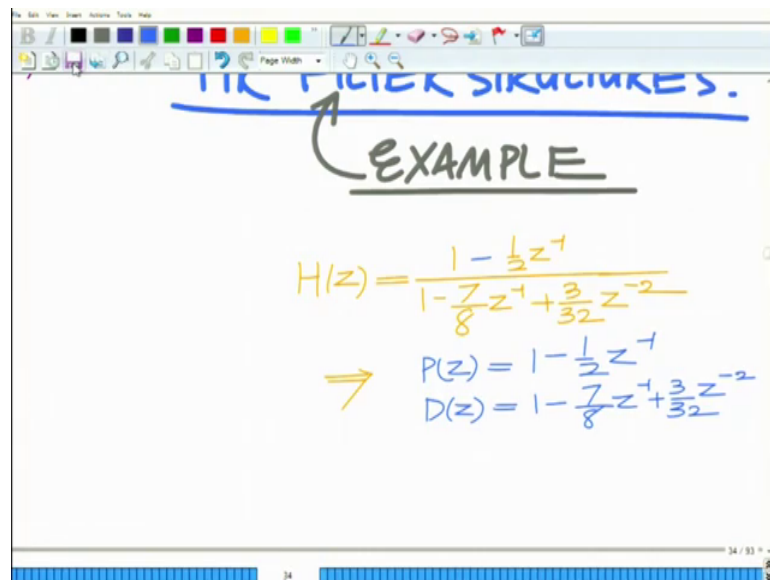 File Edit View Insert Actions Tools Help
B I
Page Width
IIR FILTER STRUCTURES.
EXAMPLE
H(z) = \frac{1 - \frac{1}{2}z^{-1}}{1 - \frac{7}{8}z^{-1} + \frac{3}{32}z^{-2}}
⇒ P(z) = 1 - \frac{1}{2}z^{-1}
D(z) = 1 - \frac{7}{8}z^{-1} + \frac{3}{32}z^{-2}
34 / 93
34